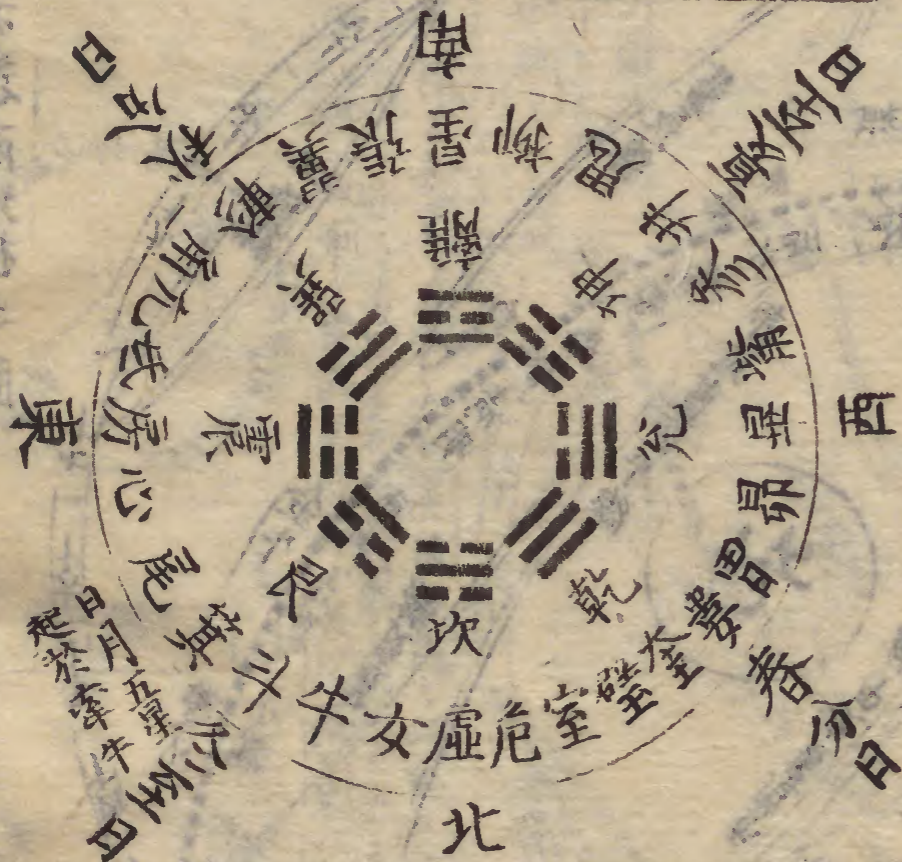 南
夏至日
西
春分日
北
冬至日
東
秋分日
日月五星
起於牽牛
角亢氐房心尾箕斗牛女虛危室壁奎婁胃昴畢觜參井鬼柳星張翼軫
離
坤
兌
乾
坎
艮
震
巽